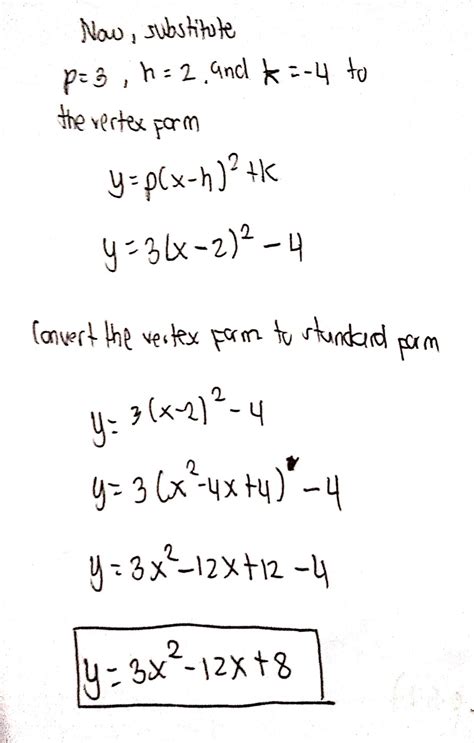 Now, substitute
p=3, h=2, and k=-4 to
the vertex form
y=p(x-h)²+k
y=3(x-2)²-4
Convert the vertex form to standard form
y=3(x-2)²-4
y=3(x²-4x+4)-4
y=3x²-12x+12-4
y=3x²-12x+8